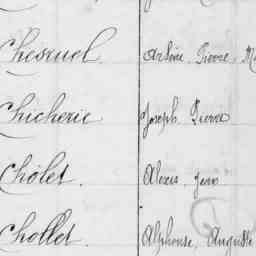 Chesnel Arsène, Pierre, M
Chicherie Joseph, Pierre
Cholet. Alexis, Jean
Chollet. Alphonse, Auguste